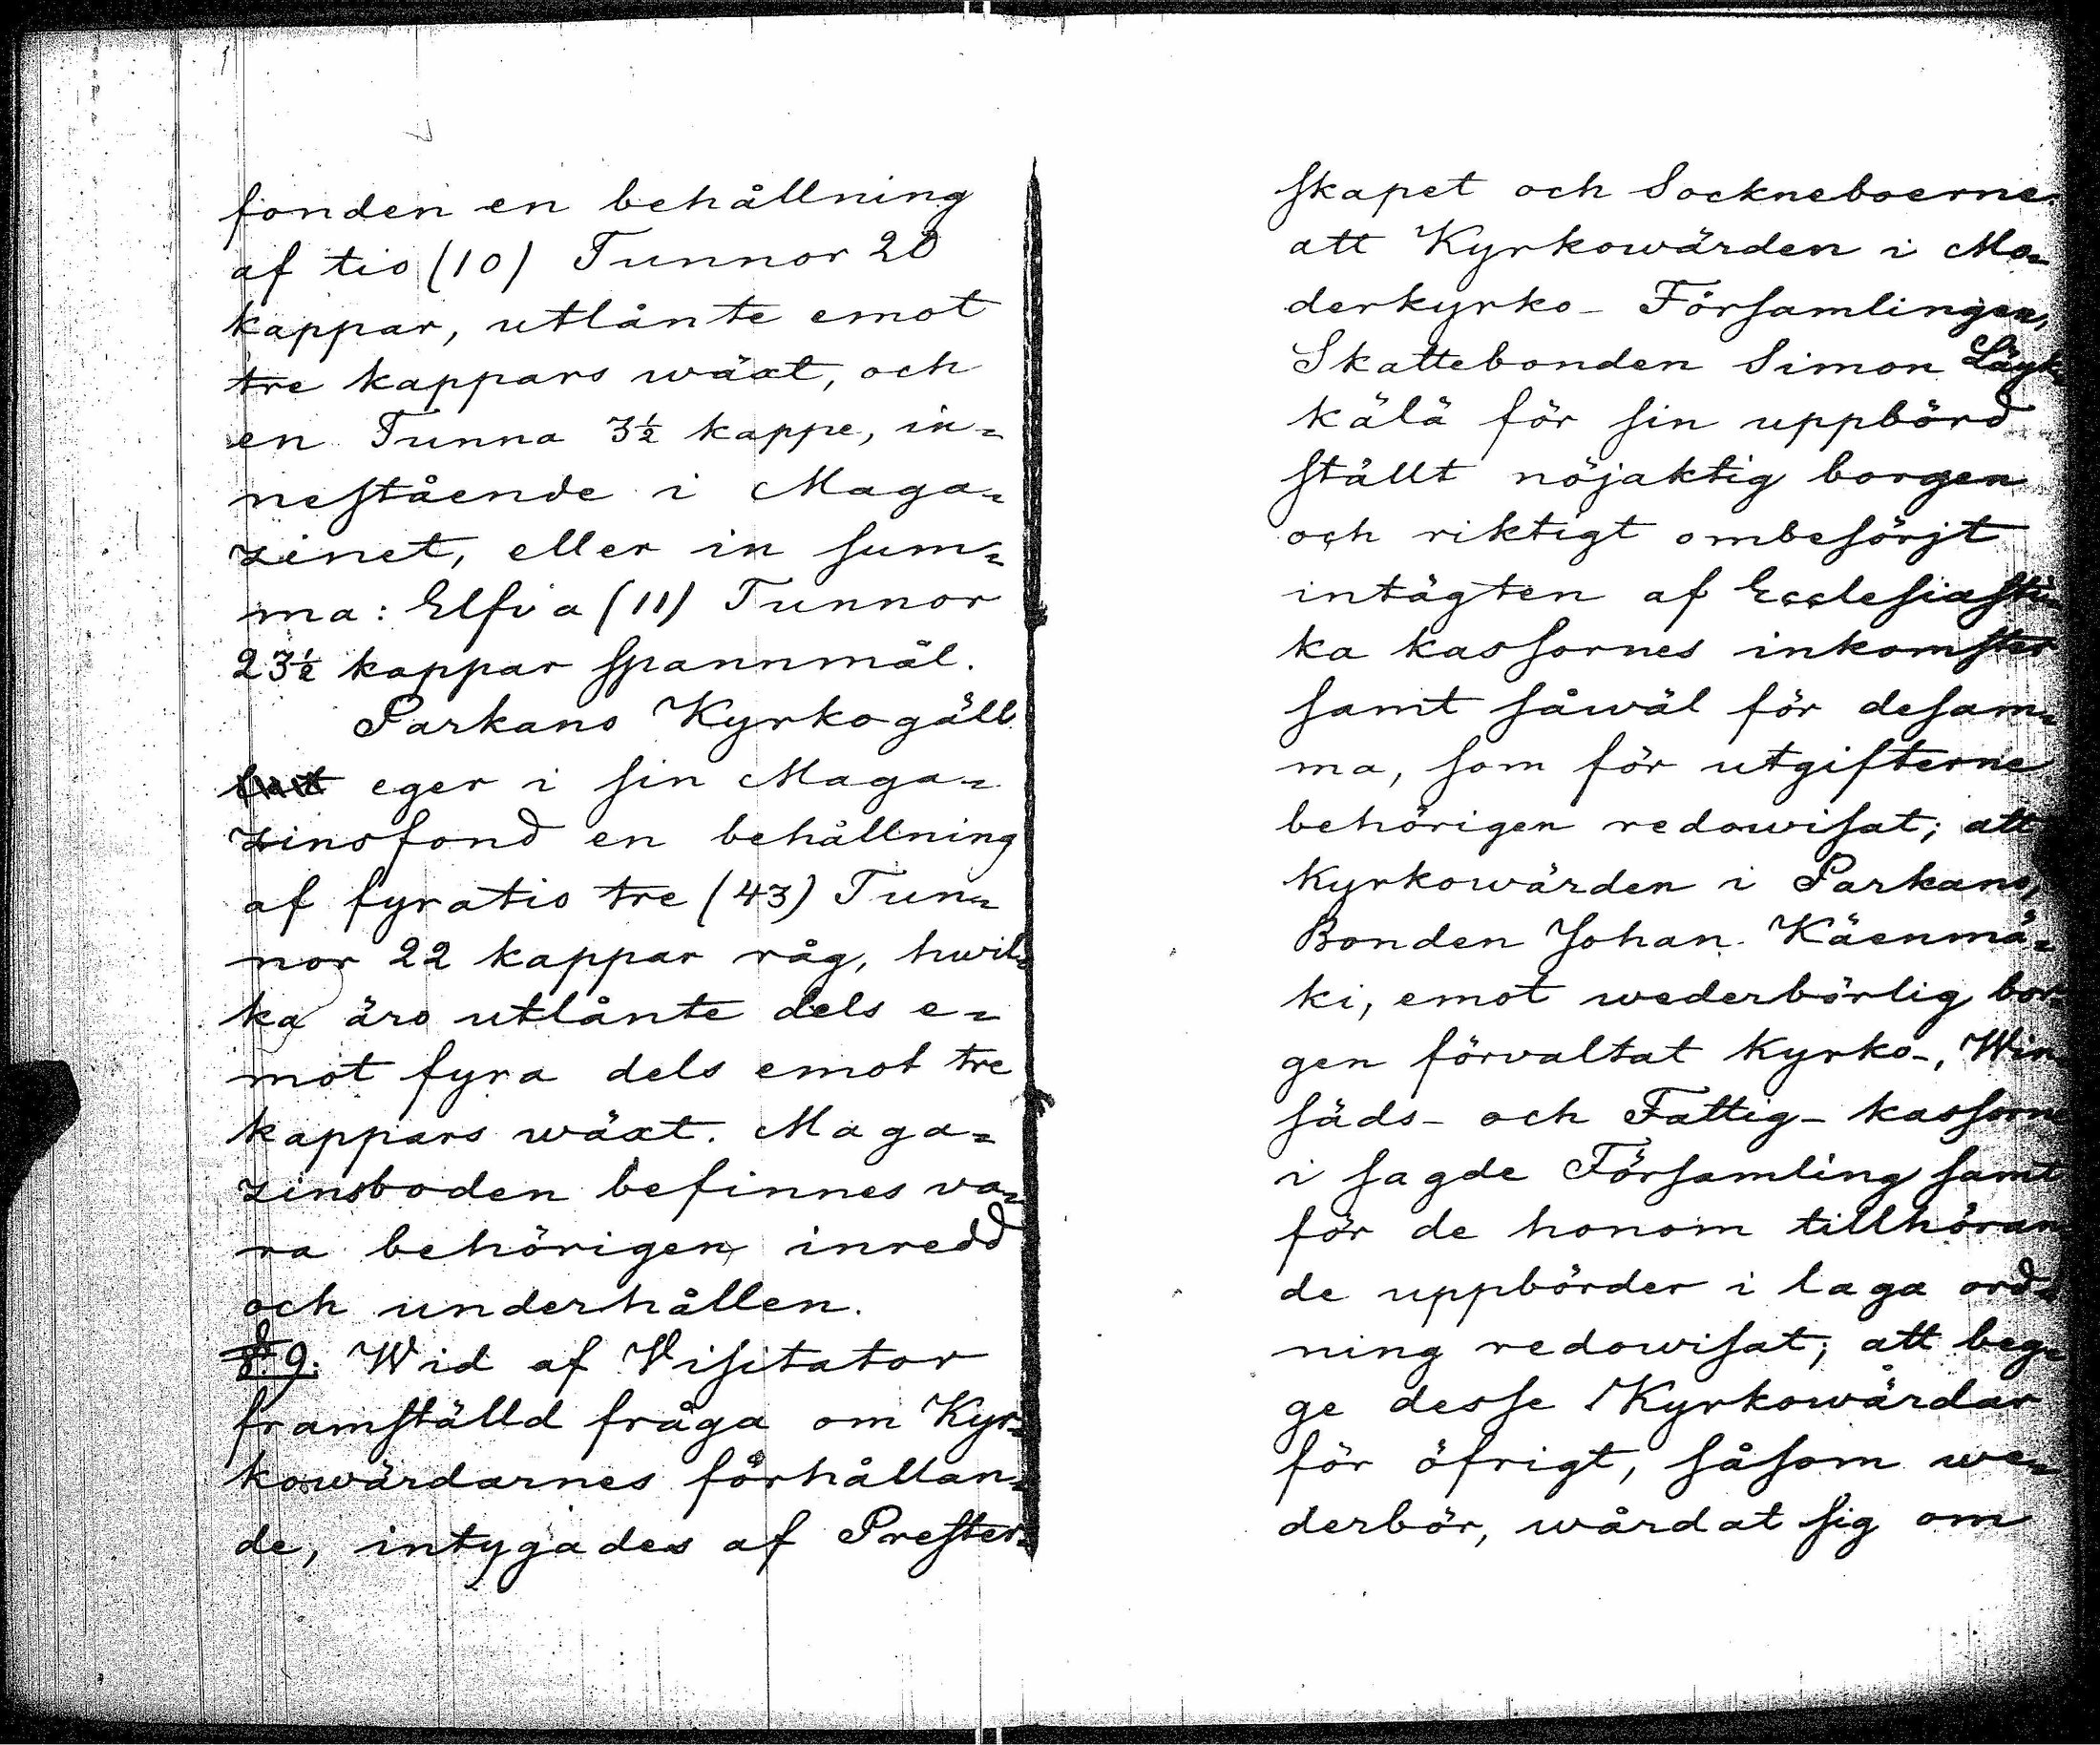 fonden en behållning
af tio (10) Tunnor 20
kappar, utlånte emot
tre kappars wäxt, och
en Tunna 3½ kappe, in=
nestående i Maga=
zinet, eller in sum=
ma: Elfva (11) Tunnor
23½ kappar spannmål.
Parkano Kyrkogäll
eger i sin Maga=
zinsfond en behållning
af fyratio tre (43) Tun=
nor 22 kappar råg, hwil=
ka äro utlånte dels e=
mot fyra dels emot tre
kappars wäxt. Maga=
zinsboden befinnes va=
ra behörigen inredd
och underhållen.
§.9. Wid af Visitator
framställd fråga om Kyr=
kowärdarnes förhållan=
de, intygades af Prester=
skapet och Sockneboerne
att Kyrkowärden i Mo=
derkyrko- Församlingen,
Skattebonden Simon Läyk=
kälä för sin uppbörd
ställt nöjaktig borgen
och riktigt ombesörjt
intägten af Ecclesiasti=
ka kassornes inkomster
samt såwäl för desam=
ma, som för utgifterne
behörigen redowisat; att
Kyrkowärden i Parkano,
Bonden Johan Käenmä=
ki, emot wederbörlig bor=
gen förvaltat Kyrko-, Win
säds- och Fattig- kassorne
i sagde Församling samt
för de honom tillhöran
de uppbörder i laga ord=
ning redowisat; att beg=
ge desse Kyrkowärdar
för öfrigt, såsom we=
derbör, wårdat sig om